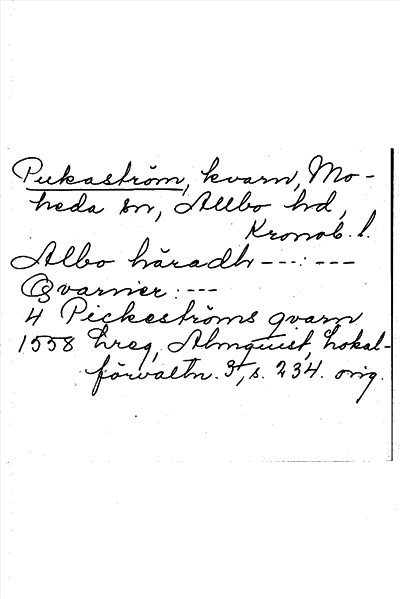 Pukaström, kvarn, Mo-
heda sn, Allbo hd,
Kronob. l.
Albo häradh ---:---
Qvarner: ---
4 Pickeströms qvarn
1558 Lreg, Almquist, Lokal-
förvaltn. 3, s. 234. orig.